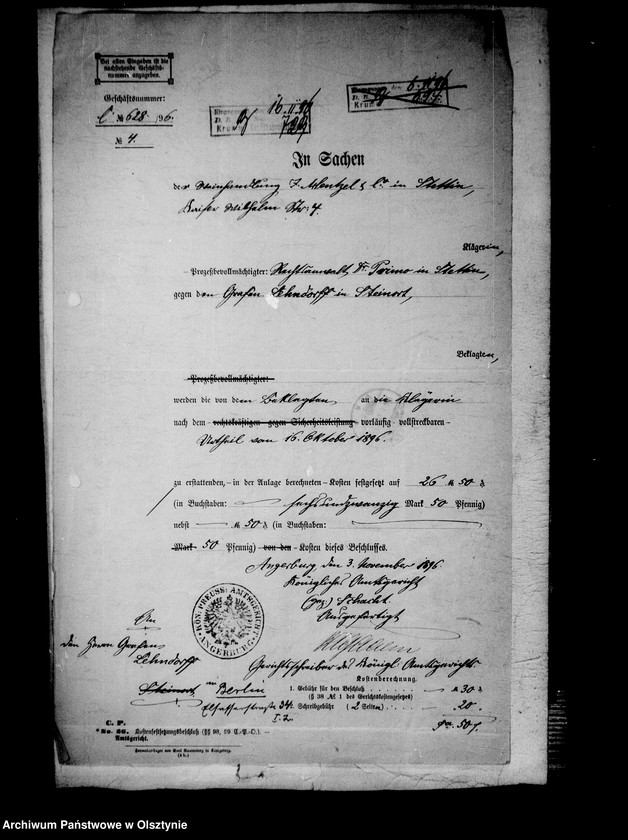 Bei allen Eingaben ist die
nachstehende Geschäfts-
nummer anzugeben.
Geschäftsnummer:
C № 628 /96.
№ 4.
16.11.96
729
Krum
6.11.96
Krum
In Sachen
der Weinhandlung F. Mentzel & Co in Stettin,
Kaiser Wilhelm Str. 4.
Klägerin,
Prozeßbevollmächtigter: Rechtsanwalt Dr. Primo in Stettin,
gegen den Grafen Lehndorff in Steinort,
Beklagten,
Prozeßbevollmächtigter:
werden die von dem Beklagten an die Klägerin
nach dem rechtskräftigen gegen Sicherheitsleistung vorläufig vollstreckbaren
Urtheil vom 16. Oktober 1896.
zu erstattenden, – in der Anlage berechneten – Kosten festgesetzt auf 26 M 50 ₰
(in Buchstaben: sechsundzwanzig Mark 50 Pfennig)
nebst M 50 ₰ (in Buchstaben:
Mark 50 Pfennig) von den Kosten dieses Beschlusses.
Angerburg den 3. November 1896
Königliches Amtsgericht
(gez.) Schacht.
Ausgefertigt
Gerichtsschreiber des Königl. Amtsgerichts
KÖN. PREUSS. AMTSGERICHT
ANGERBURG
An
den Herrn Grafen
Lehndorff
Steinort Berlin
Elsasserstraße 34.
Kostenberechnung.
1. Gebühr für den Beschluß M 30 ₰
(§ 38 № 1 des Gerichtskostengesetzes)
2. Schreibgebühr (2 Seiten) 20
50
C. P.
*No. 86. Kostenfestsetzungsbeschluß (§§ 98, 99 C.-P.-O.). –
Amtsgericht.
Archiwum Państwowe w Olsztynie